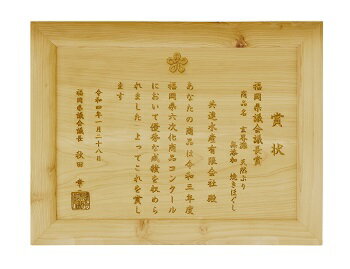 賞状
福岡県議会議長賞
商品名 玄界灘 天然ぶり
無添加 焼きほぐし
共進水産有限会社 殿
あなたの商品は令和三年度
福岡県六次化商品コンクール
において優秀な成績を収めら
れました よってこれを賞し
ます
令和四年一月二十八日
福岡県議会議長 秋田